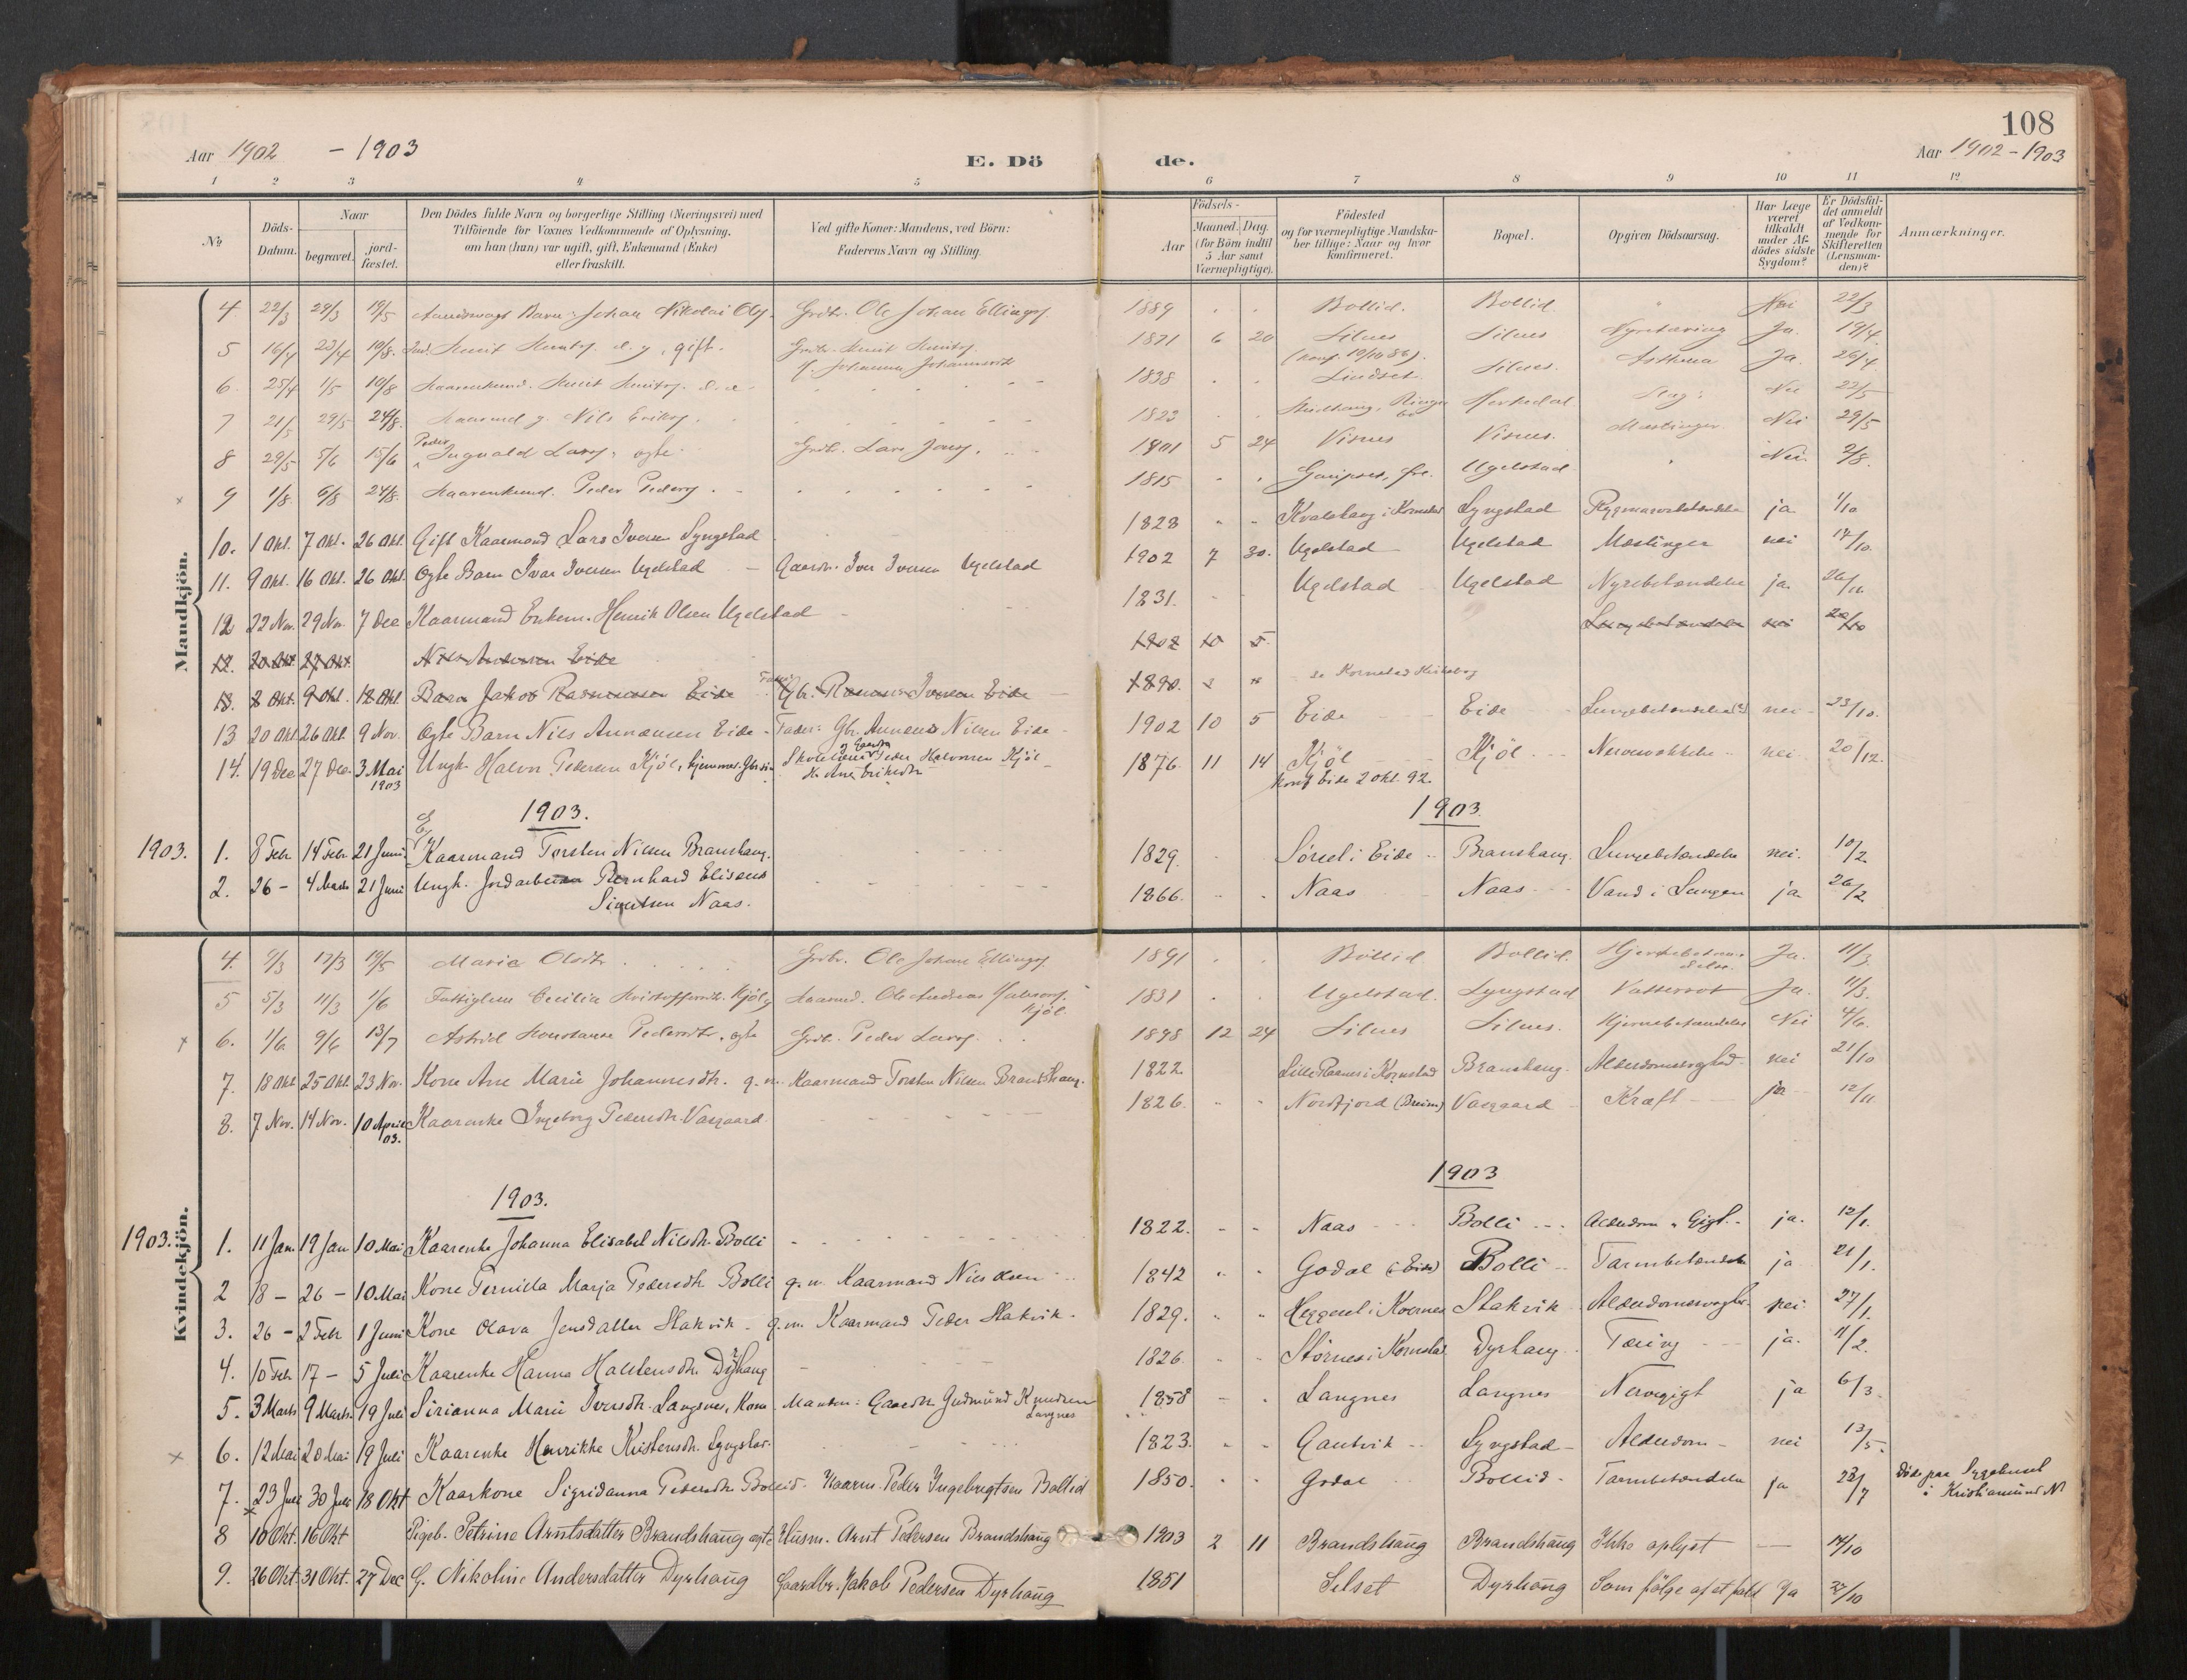 108
Aar 1902 - 1903
E. Dö de.
Aar 1902-1903
1 2 3 4 5 6 7 8 9 10 11 12
No
Döds-Datum.
Naar
begravet.
jord-fæstet.
Den Dödes fulde Navn og borgerlige Stilling (Næringsvei) med
Tilföiende for Voxnes Vedkommende af Oplysning,
om han (hun) var ugift, gift, Enkemand (Enke)
eller fraskilt.
Ved gifte Koner: Mandens, ved Börn:
Faderens Navn og Stilling.
Födsels-
Aar
Maaned. Dag.
(for Börn indtil
5 Aar samt
Værnepligtige).
Födested
og for værnepligtige Mandska-
ber tillige: Naar og hvor
konfirmeret.
Bopæl.
Opgiven Dödsaarsag.
Har Læge
været
tilkaldt
under Af-
dödes sidste
Sygdom?
Er Dödsfal-
det anmeldt
af Vedkom-
mende for
Skifteretten
(Lensman-
den)?
Anmærkninger.
Mandkjön.
4 22/3 29/3 19/5 Barn Johan Nikolai Ols. Grdbr. Ole Johan Ellings. 1889 Bollid. Bollid. Nei 22/3
5 16/4 23/4 10/8 Knut Knuts. d. y., gift. Grdbr. Knut Knuts. 1871 6 20 Silnes Silnes Ja. 19/4
(konf. 10/10 86).
6. 25/4 1/5 10/8 Kaarenkmd. Knut Knuts. d. æ. 1838 Lindset Silnes. Asthma Ja. 26/4
7 21/5 29/5 24/8. Kaarmd g. Nils Eriks. 1823 Slag Nei 22/5
8 29/5 5/6 15/6 Peder Ingvald Lars., ægte. Grdbr. Lars Jons. 1901 5 24 Visnes Visnes. Mæslinger. Nei 29/5
9 1/8 6/8 24/8. Kaarenkmd. Peder Peders. 1815 Ugelstad Nei. 2/8.
10. 1 Okt. 7 Okt. 26 Okt. Gift Kaarmand Lars Iversen Lyngstad 1828 Kvalshaug i Kornstad Lyngstad Rygmarvsbetændelse ja 1/10
11. 9 Okt. 16 Okt. 26 Okt. Ægte Barn Ivar Iversen Ugelstad Gaardbr. Iver Iversen Ugelstad 1902 7 30. Ugelstad Ugelstad Mæslinger nei 17/10.
12 22 Nov. 29 Nov. 7 Dec Kaarmand Enkem. Henrik Olsen Ugelstad 1831. Ugelstad Ugelstad Nyrebetændelse ja 26/11
12. 20 Okt 27 Okt Nils Andersen Eide 1902 10 5. Lungebetændelse nei 20/10
13. 2 Okt. 9 Okt. 12 Okt. Barn Jakob Rasmussen Eide Gbr. Rasmus Iversen Eide 1890. se Kornstad Kirkebog
13 20 Okt 26 Okt. 9 Nov. Ægte Barn Nils Annæusen Eide - Fader: Gbr. Annæus Nilsen Eide 1902 10 5 Eide Eide Lungebetændelse (?) nei 23/10.
14. 19 Dec 27 Dec. 3 Mai 1903 Ungk. Halvor Pedersen Kjöl, hjemmev. Gbr.sön Skolelærer og Gaardbr Peder Halvorsen Kjöl 1876 11 14 Kjöl Kjöl nei 20/12.
H. Ane Eriksdtr konf Eide 2 Okt. 92.
1903. 1903.
1903. 1. 8 Febr 14 Febr. 21 Juni Kaarmand Torsten Nilsen Branshaug. 1829. Sörsel i Eide Branshaug. Lungebetændelse nei. 10/2
2. 26 - 4 Marts 21 Juni Ungk. Jordarbeider Bernhard Eliseus
Sivertsen Naas. 1866. Naas Naas Vand i Lungen ja 26/2
Kvindekjön.
4. 9/3 17/3 19/5 Marie Olsdtr. Grdbr. Ole Johan Ellings. 1891 Bollid Bollid. Hjernebetændelse. Ja. 11/3
5 5/3 11/3 1/6 Fattiglem Cecilia Kristoffersdtr. Kjöl, Kaarmd. Ole Andreas Kjöl. 1831 Ugelstad. Lyngstad Vattersot Ja. 11/3.
6. 1/6 9/6 13/7 Astrid Konstanse Pedersdtr., ægte Grdbr. Peder Lars. 1898 12 24 Silnes Silnes. Hjernebetændelse Nei 4/6.
7. 18 Okt 25 Okt. 23 Nov. Kone Ane Marie Johannesdtr. g. m. Kaarmand Torsten Nilsen Branshaug. 1822 Lille Ramnes i Kornstad Branshaug. Alderdomssvaghed. nei 21/10
8. 7 Nov. 14 Nov. 10 April 03. Kaarenke Ingeborg Pedersdtr. Vasgaard. 1826. Nordfjord (Breim) Vasgaard Kræft ja 12/11
1903. 1903
1903. 1. 11 Jan. 19 Jan 10 Mai Kaarenke Johanna Elisabet Nilsdtr. Bolli 1822. Naas Bolli Alderdom & Gigt. ja. 12/1.
2 18 - 26 - 10 Mai Kone Pernilla Marja Pedersdtr. Bolli g. m. Kaarmand Nils Olsen 1842 Godal (Eide) Bolli Tarmbetændelse ja 21/1.
3. 26 - 2 Febr 1 Juni Kone Olava Jensdatter Stakvik g. m. Kaarmand Peder Stakvik. 1829. Heggeset i Kvernes Stakvik Alderdomssvaghed. nei 27/1.
4. 10 Febr. 17 - 5 Juli Kaarenke Hanna Halstensdtr. Dyrhaug 1826. Störnes i Kornstad Dyrhaug Tæring ja. 11/2.
5. 3 Marts 9 Marts. 19 Juli Sirianna Marie Iversdtr. Langnes, Kone Manden: Gaardbr. Gudmund Knudsen Langnes 1858 Langnes Langnes Nervegigt ja 6/3.
6. 12 Mai 20 Mai 19 Juli Kaarenke Henrikke Kristensdtr. Lyngstad. 1823. Gautvik Lyngstad Alderdom nei 13/5.
7. 23 Juli 30 Juli 18 Okt Kaarkone Sigridanna Pedersdtr Bollid. Kaarm. Peder Ingebrigtsen Bollid 1850. Godal Bollid Tarmbetændelse ja 23/7 döde paa Sygehuset
i Kristiansund N
8 10 Okt. 16 Okt Pigeb. Petrine Arntsdatter Brandshaug ægte Husm. Arnt Pedersen Brandshaug 1903 2 11 Brandshaug Brandshaug Ikke oplyst — 14/10
9. 26 Okt. 31 Okt. 27 Dec G. Nikoline Andersdatter Dyrhaug Gaardbr. Jakob Pedersen Dyrhaug 1851 Silset Dyrhaug Som fölge af et fald Ja 27/10